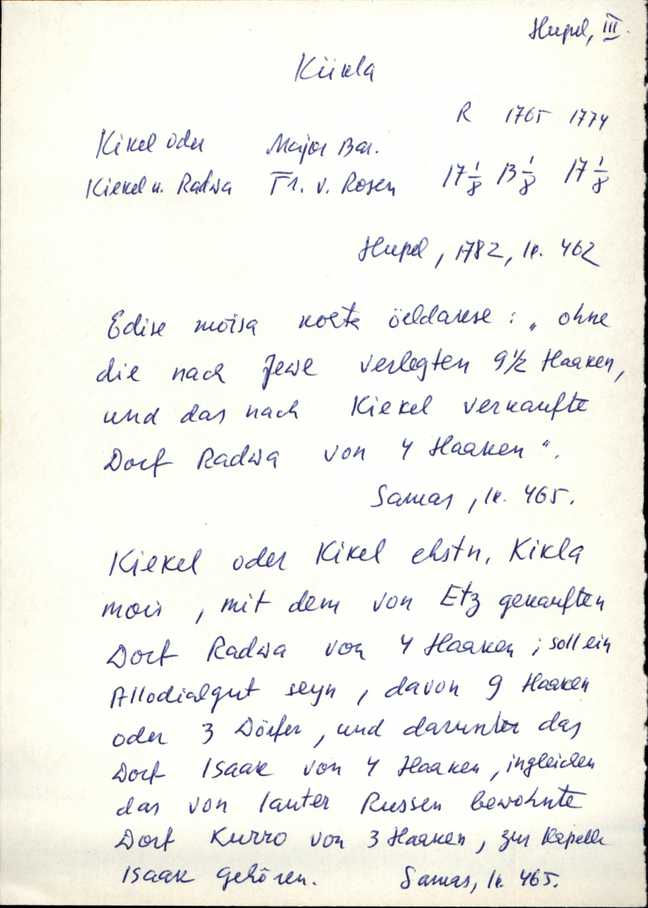 Hupel, III.
Kiikla
R 1765 1774
Kikel oder Major Bar.
Kiekel u. Radwa Fr. v. Rosen 17 1/8 13 1/8 17 1/8
Hupel, 1782, lk. 462
Edise mõisa kohta öeldakse: „ohne
die nach Jewe verlegten 9 1/2 Haaken,
und das nach Kiekel verkaufte
Dorf Radwa von 4 Haaken".
Samas, lk. 465.
Kiekel oder Kikel ehstn. Kikla
mois, mit dem von Etz gekauften
Dorf Radwa von 4 Haaken; soll ein
Allodialgut seyn, davon 9 Haaken
oder 3 Dörfer, und darunter das
Dorf Isaak von 4 Haaken, ingleichen
das von lauter Russen bewohnte
Dorf Kurro von 3 Haaken, zur Kapelle
Isaak gehören. Samas, lk. 465.